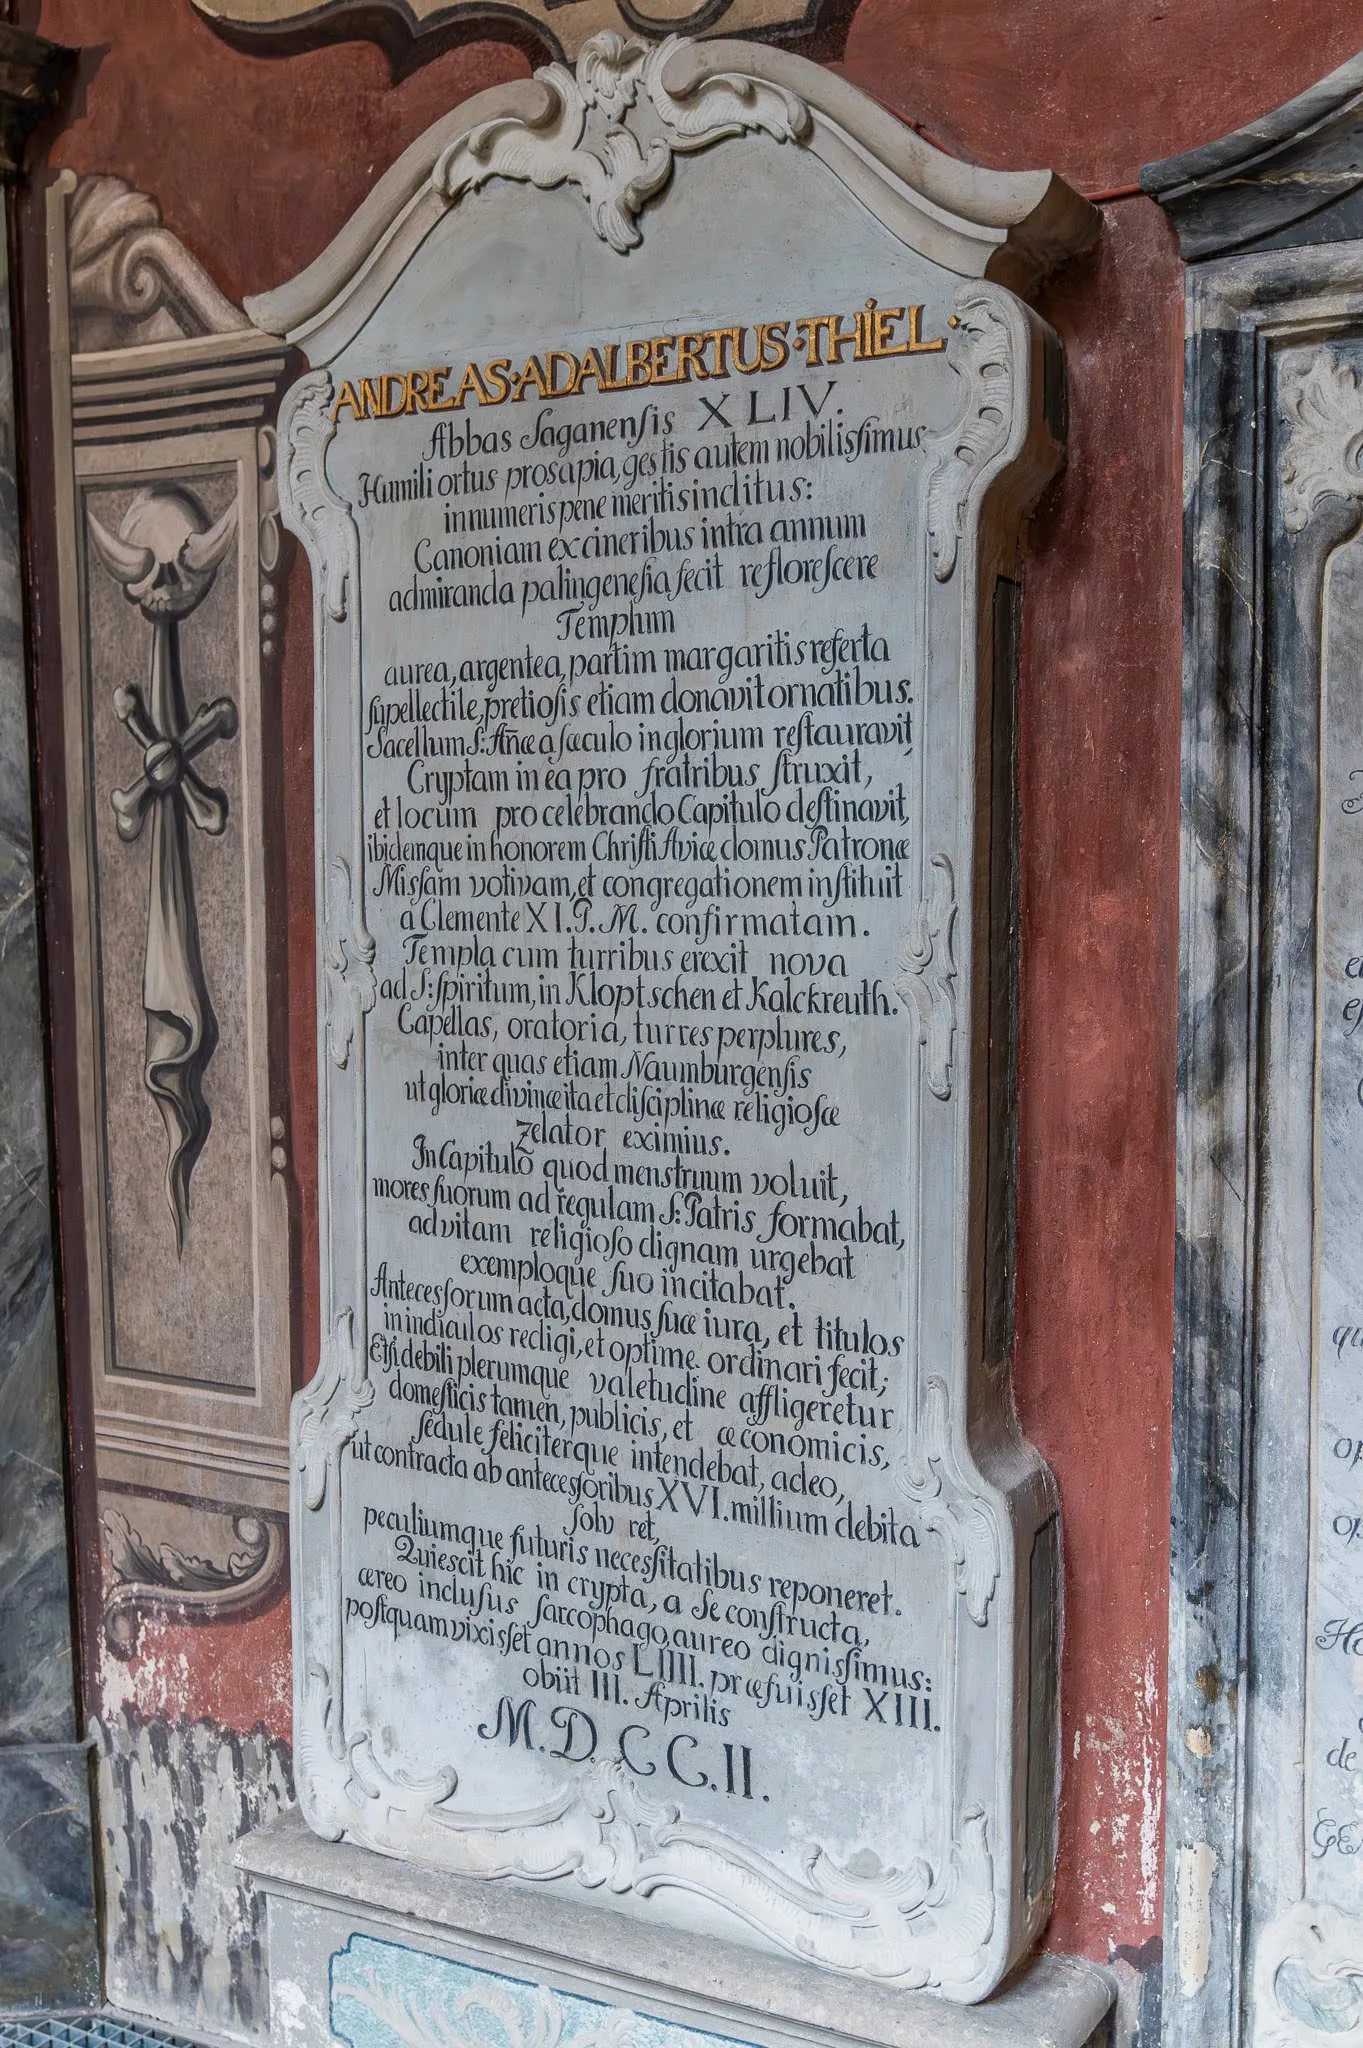 ANDREAS·ADALBERTUS·THIEL·
Abbas Saganenſis XLIV.
Humili ortus prosapia, gestis autem nobilisſimus,
innumeris pene meritis inclitus:
Canoniam ex cineribus intra annum
admiranda palingeneſia fecit refloreſcere
Templum
aurea, argentea, partim margaritis referta
ſupellectile, pretioſis etiam donavit ornatibus.
Sacellum S: Añæ a ſæculo inglorium reſtauravit,
Cryptam in ea pro fratribus ſtruxit,
et locum pro celebrando Capitulo deſtinavit,
ibidemque in honorem Chriſti Aviæ domus Patronæ
Misſam votivam, et congregationem inſtituit
a Clemente XI. P. M. confirmatam.
Templa cum turribus erexit nova
ad S: ſpiritum, in Kloptschen et Kalckreuth.
Capellas, oratoria, turres perplures,
inter quas etiam Naumburgenſis
ut gloriæ divinæ ita et diſciplinæ religioſæ
zelator eximius.
In Capitulo quod menstruum voluit,
mores ſuorum ad regulam S: Patris formabat,
ad vitam religioſo dignam urgebat
exemploque ſuo incitabat.
Antecesſorum acta, domus ſuæ iura, et titulos
in indiculos redigi, et optime ordinari fecit;
Etſi debili plerumque valetudine affligeretur
domeſticis tamen, publicis, et œconomicis,
ſedule feliciterque intendebat, adeo,
ut contracta ab antecesſoribus XVI. millium debita
ſolv ret,
peculiumque futuris necesſitatibus reponeret.
Quiescit hic in crypta, a Se conſtructa,
æreo incluſus ſarcophago, aureo dignisſimus:
poſtquam vixisſet annos LIIII. præfuisſet XIII.
obiit III. Aprilis
M.D.CC.II.